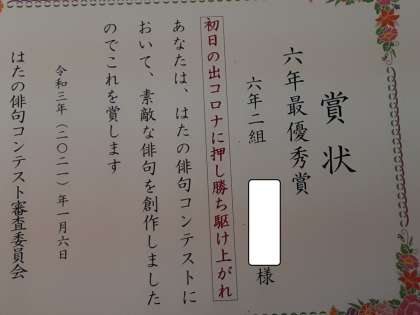 賞状
六年最優秀賞
六年二組
様
初日の出コロナに押し勝ち駆け上がれ
あなたは、はたの俳句コンテストに
おいて、素敵な俳句を創作しました
のでこれを賞します
令和三年(二〇二一)年一月六日
はたの俳句コンテスト審査委員会